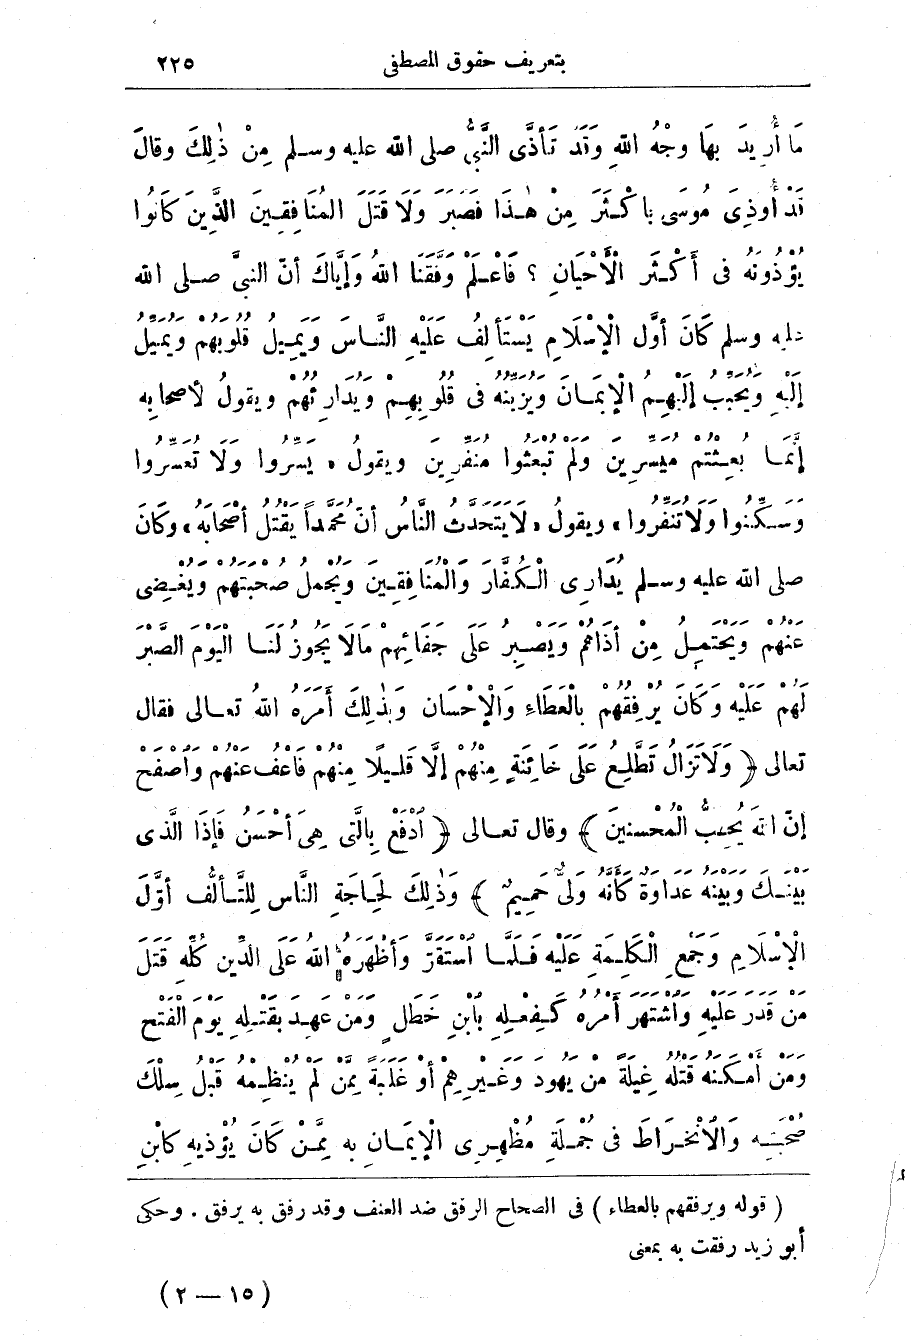 بتعريف حقوق المصطفى ٢٢٥
مَا أُرِيدَ بِهَا وَجْهُ اللهِ وَقَدْ تَأَذَّى النَّبِيُّ صلى الله عليه وسلم مِنْ ذٰلِكَ وقالَ
قَدْ أُوذِىَ مُوسَى بِأَكْثَرَ مِنْ هٰذَا فَصَبَرَ وَلَا قَتَلَ المُنَافِقِينَ الذَّينَ كَانُوا
يُؤْذُونَهُ فى أَكْثَرِ الْأَحْيَانِ ؟ فَاعْلَمْ وَفَّقَنَا اللهُ وَإِيَّاكَ أنّ النبيَّ صلى الله
عليه وسلم كَانَ أوَّل الْإسْلَامِ يَسْتَأْلِفُ عَلَيْهِ النَّاسَ وَيَمِيلُ قُلُوبَهُمْ وَيُمَيِّلُ
إلَيْهِ وَيُحَبِّبُ إلَيْهِمُ الْإيمَانَ وَيُزَيِّنُهُ فى قُلُوبِهِمْ وَيُدَارِئُهُمْ ويقولُ لأصحابِهِ
إنَّمَا بُعِثْتُم مُيَسِّرِينَ وَلَمْ تُبْعَثُوا مُنَفِّرِينَ ويقولُ « يَسِّرُوا وَلَا تُعَسِّرُوا
وَسَكِّنُوا وَلَا تُنَفِّرُوا » ويقولُ « لَا يَتَحَدَّثُ النَّاسُ أنّ مُحَمَّداً يَقْتُلُ أصْحَابَهُ » وكَانَ
صلى الله عليه وسلم يُدَارِى الْكُفَّارَ وَالْمُنَافِقِينَ وَيُجْمِلُ صُحْبَتَهُمْ وَيُغْضِى
عَنْهُمْ وَيَحْتَمِلُ مِنْ أذَاهُمْ وَيَصْبِرُ عَلَى جَفَائِهِمْ مَالَا يَجُوزُ لَنَا الْيَوْمَ الصَّبْرَ
لَهُمْ عَلَيْهِ وَكَانَ يُرْفِقُهُمْ بِالْعَطَاءِ وَالْإحْسَانِ وَبِذٰلِكَ أَمَرَهُ اللهُ تعالى فقال
تعالى ﴿ وَلَا تَزَالُ تَطَّلِعُ عَلَى خَائِنَةٍ مِنْهُمْ إلَّا قَلِيلًا مِنْهُم فَاعْفُ عَنْهُم وَاصْفَحْ
إنّ اللهَ يُحِبُّ الْمُحْسِنِينَ ﴾ وقال تعالى ﴿ ادْفَعْ بِالَّتِى هِىَ أحْسَنُ فَإِذَا الَّذى
بَيْنَكَ وَبَيْنَهُ عَدَاوَةٌ كَأَنَّهُ وَلِىٌّ حَمِيمٌ ﴾ وَذٰلِكَ لِحَاجَةِ النَّاسِ لِلتَّأَلُّفِ أوَّلَ
الْإسْلَامِ وَجَمْعِ الْكَلِمَةِ عَلَيْهِ فَلَمَّا اسْتَقَرَّ وَأظْهَرَهُ اللهُ عَلَى الدِّينِ كُلِّهِ قَتَلَ
مَنْ قَدَرَ عَلَيْهِ وَاشْتَهَرَ أمْرُهُ كَفِعْلِهِ بِابْنِ خَطَلٍ وَمَنْ عَهِدَ بِقَتْلِهِ يَوْمَ الْفَتْحِ
وَمَنْ أَمْكَنَهُ قَتْلُهُ غِيلَةً مِنْ يَهُودَ وَغَيْرِهِمْ أوْ غَلَبَةً مِمَّنْ لَمْ يَنْظِمْهُ قَبْلُ سِلْكُ
صُحْبَتِهِ وَالْانْخِرَاطِ فى جُمْلَةِ مُظْهِرِى الْإيمَانِ بِهِ مِمَّنْ كَانَ يُؤْذِيهِ كَابْنِ
( قوله ويرفقهم بالعطاء ) فى الصحاح الرفق ضد العنف وقد رفق به يرفق . وحكى
أبو زيد رفقت به بمعنى
( ١٥ — ٢ )